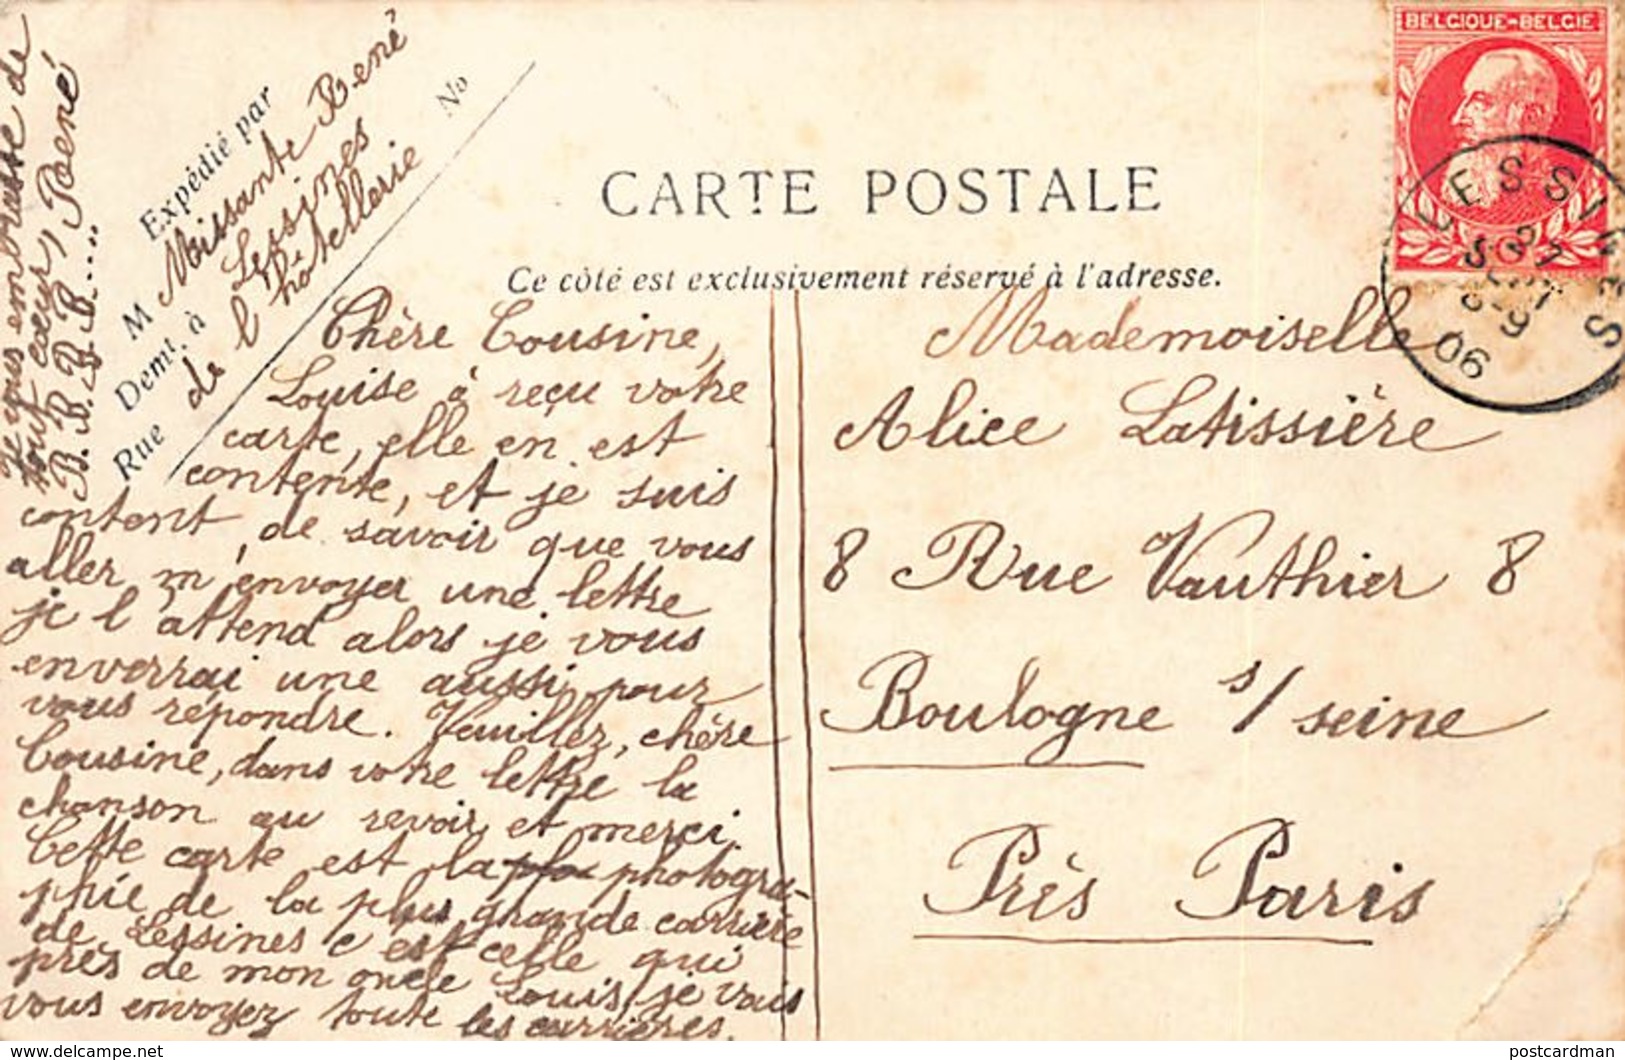 BELGIQUE-BELGIE
LESSINES
27
SEPT
9
06
CARTE POSTALE
Ce côté est exclusivement réservé à l'adresse.
Expédié par
M Missante René
Demt. à Lessines
Rue de l'hôtellerie No
Chère Cousine,
Louise à reçu votre
carte, elle en est
contente, et je suis
content, de savoir que vous
aller m'envoyer une lettre
je l'attend alors je vous
enverrai une aussi pour
vous répondre. Veuillez, chère
Cousine, dans votre lettre la
chanson au revoir et merci.
Cette carte est la photogra-
phie de la plus grande carrière
de Lessines c'est celle qui
près de mon oncle Louis, je vais
vous envoyez toute les carrières.
Je vous embrasse de
tout cœur, René
B. B. B. B. B. B....
Mademoiselle
Alice Latissière
8 Rue Vauthier 8
Boulogne s/ seine
Près Paris
delcampe.net
postcardman